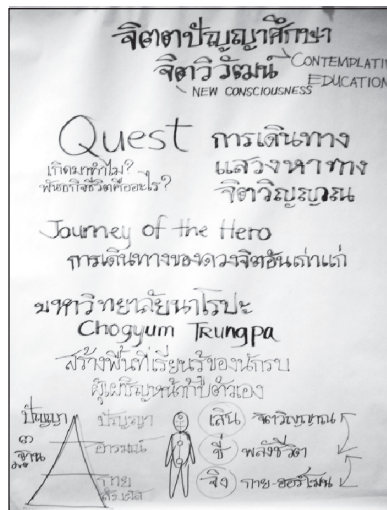 จิตตปัญญาศึกษา
CONTEMPLATIV
EDUCATION
จิตวิวัฒน์
NEW CONSCIOUSNESS
Quest การเดินทาง
แสวงหาทาง
จิตวิญญาณ
เกิดมาทำไม?
พันธกิจชีวิตคืออะไร?
Journey of the Hero
การเดินทางของดวงจิตอันเก่าแก่
มหาวิทยาลัยนาโรปะ
Chogyum Trungpa
สร้างพื้นที่เรียนรู้ของนักรบ
ผู้เผชิญหน้ากับตัวเอง
ปัญญา
๓
ฐาน
ปัญญา
อารมณ์
กาย
เสิน จิตวิญญาณ
ชี่ พลังชีวิต
จิง กาย-ฮอร์โมน